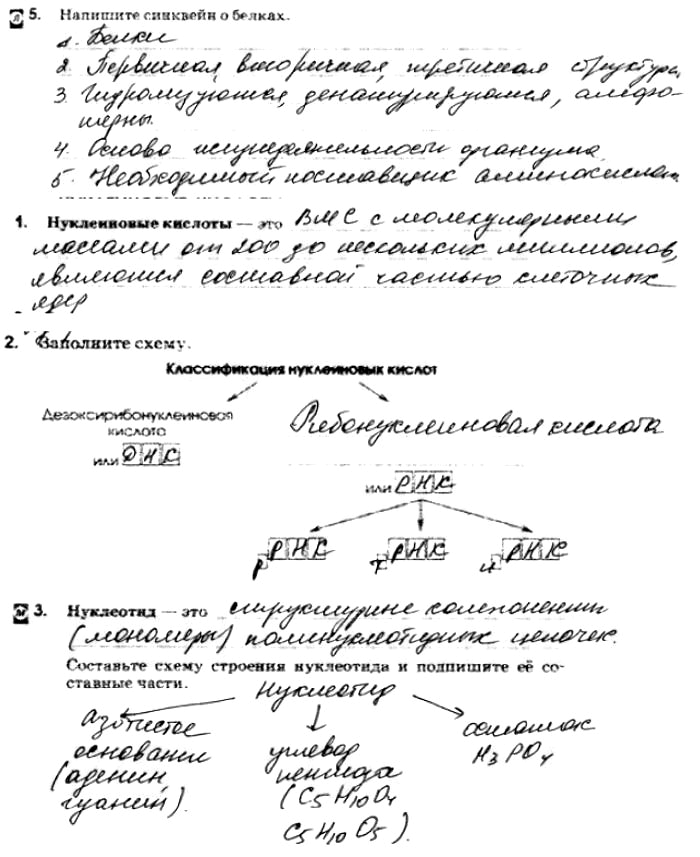 Л 5. Напишите синквейн о белках.
1. Белки
2. Первичная, вторичная, третичная структура
3. Гидролизуются, денатурируются, амфо-
терны.
4. Основа жизнедеятельности организма.
5. Необходимый поставщик аминокислот.
1. Нуклеиновые кислоты — это ВМС с молекулярными
массами от 200 до нескольких миллионов,
являются составной частью клеточных
ядер
2. Заполните схему.
Классификация нуклеиновых кислот
Дезоксирибонуклеиновая
кислота
или ДНК
Рибонуклеиновая кислота
или РНК
р РНК т РНК и РНК
М 3. Нуклеотид — это структурные компоненты
(мономеры) полинуклеотидных цепочек.
Составьте схему строения нуклеотида и подпишите её со-
ставные части.
Нуклеотид
азотистое
основание
(аденин
гуанин).
углевод
пентоза
(C5H10O4
C5H10O5).
остаток
H3PO4